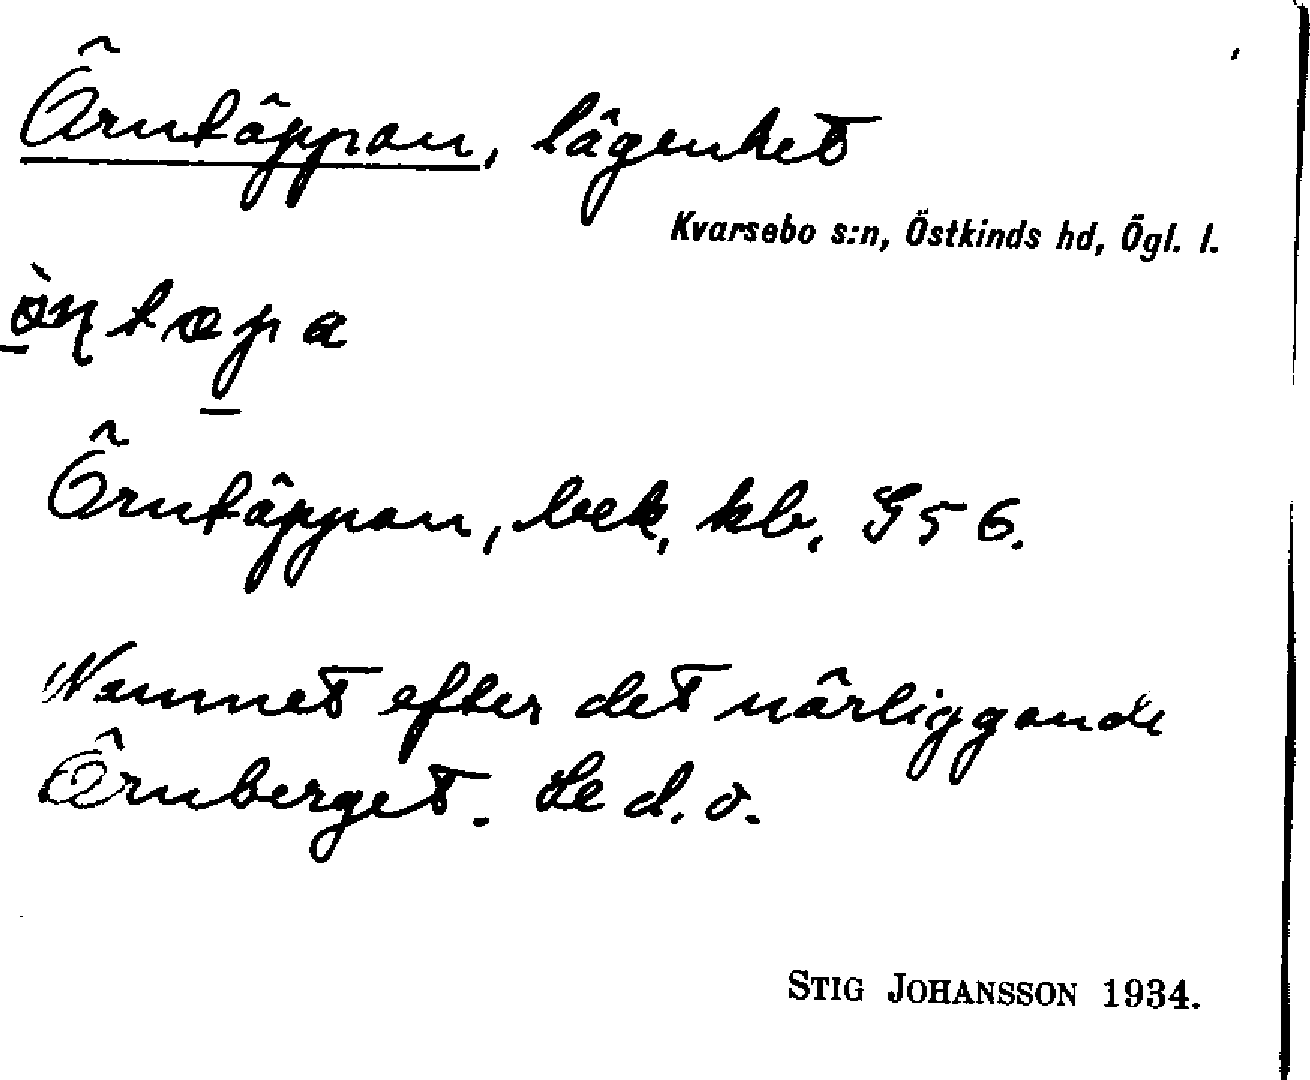 Örntäppan, lägenhet
Kvarsebo s:n, Östkinds hd, Ögl. l.
Örntäppan, bek. kb. G 5 6.
Namnet efter det närliggande
Örnberget. Se d. o.
STIG JOHANSSON 1934.